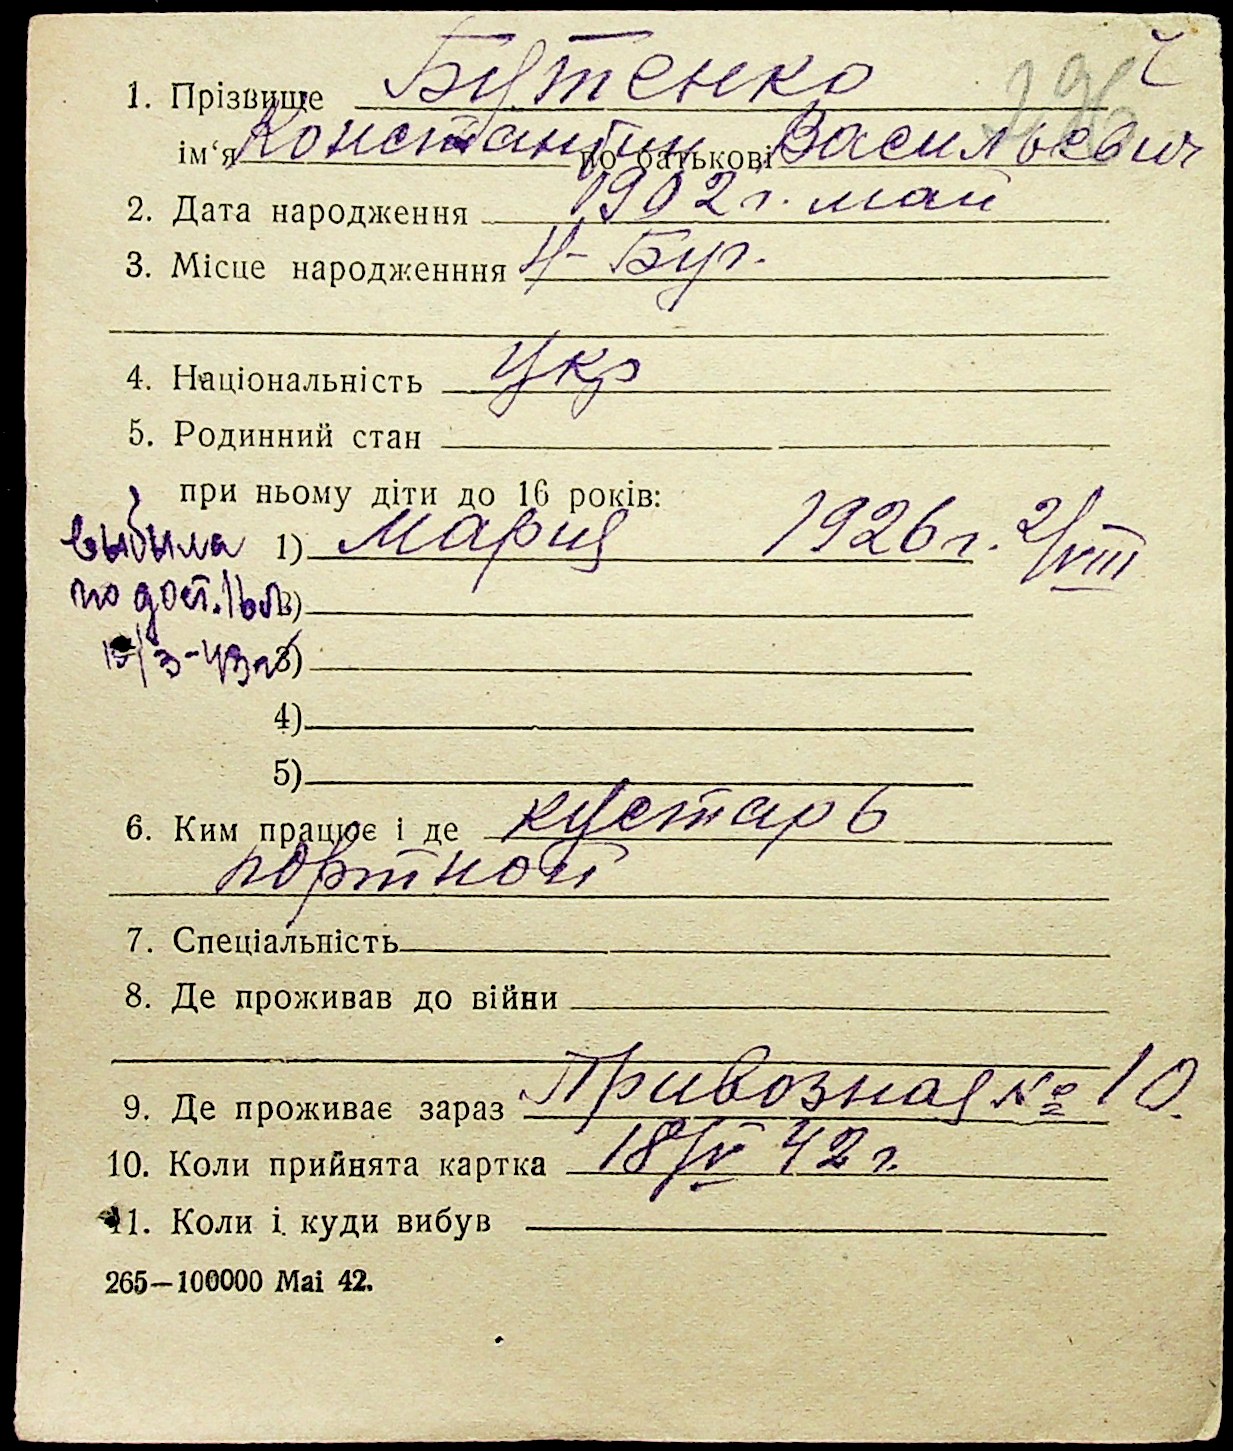 1. Прізвище Бутенко
ім‘я Константин по батькові Васильевич
2. Дата народження 1902 г. май
3. Місце народженння Н-Буг.
4. Національність Укр
5. Родинний стан
при ньому діти до 16 років:
1) Мария 1926 г. 2/VIII
выбыла
по дост. 16 л.
2)
3)
4)
5)
6. Ким працює і де кустарь
портной
7. Спеціальність
8. Де проживав до війни
9. Де проживає зараз Привозная № 10.
10. Коли прийнята картка 18/V 42 г.
11. Коли і куди вибув
265—100000 Mai 42.